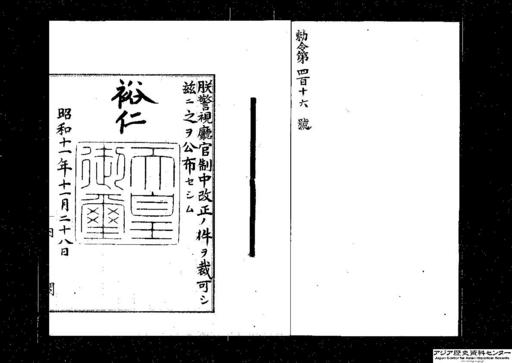 勅令第四百十六號
朕警視廳官制中改正ノ件ヲ裁可シ
茲ニ之ヲ公布セシム
裕仁
天皇
御璽
昭和十一年十一月二十八日
内閣
アジア歴史資料センター
Japan Center for Asian Historical Records